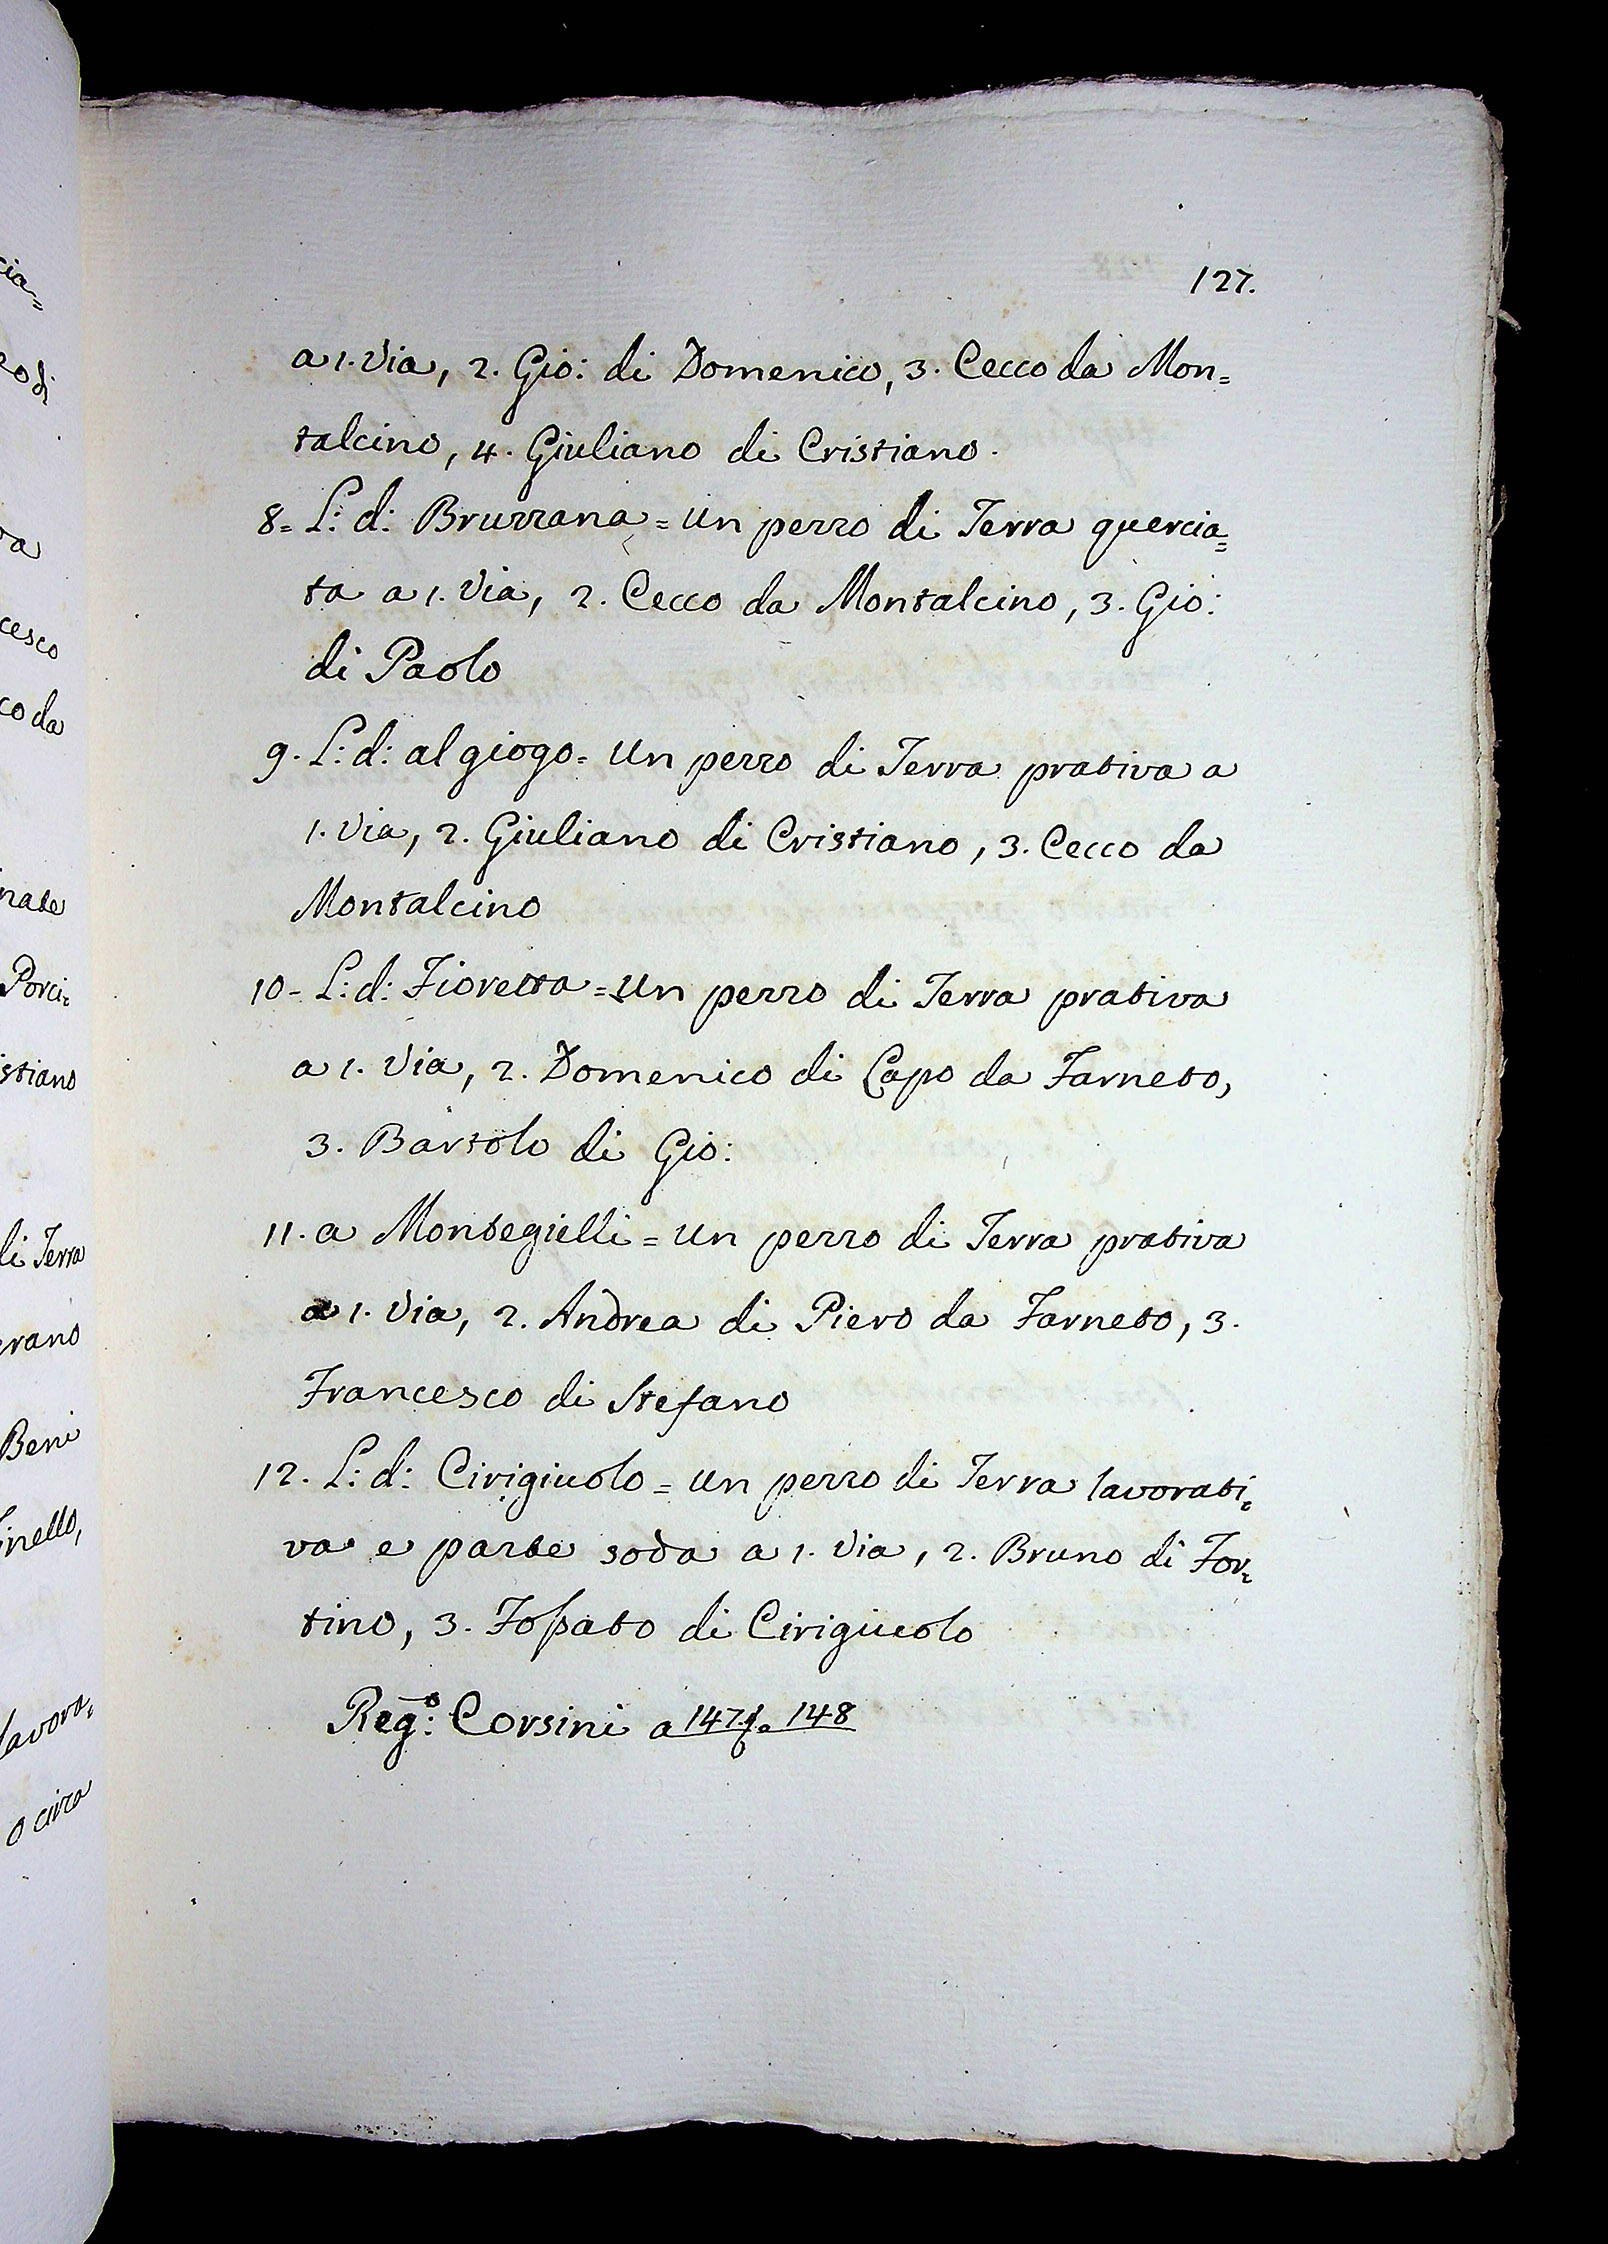 127.
a 1. Via, 2. Gio: di Domenico, 3. Cecco da Mon=
talcino, 4. Giuliano di Cristiano.
8= L: d: Bruzzana = un pezzo di Terra quercia=
ta a 1. Via, 2. Cecco da Montalcino, 3. Gio:
di Paolo
9. L: d: al giogo = un pezzo di Terra prativa a
1. Via, 2. Giuliano di Cristiano, 3. Cecco da
Montalcino
10- L: d: Fioretta = un pezzo di Terra prativa
a 1. Via, 2. Domenico di Capo da Farneto,
3. Bartolo di Gio:
11. a Montegielli = un pezzo di Terra prativa
a 1. Via, 2. Andrea di Piero da Farneto, 3.
Francesco di Stefano
12. L: d: Cirigiuolo = un pezzo di Terra lavorati=
va e parte soda a 1. Via, 2. Bruno di For=
tino, 3. Fossato di Cirigiuolo
Reg:o Corsini a 147. 148